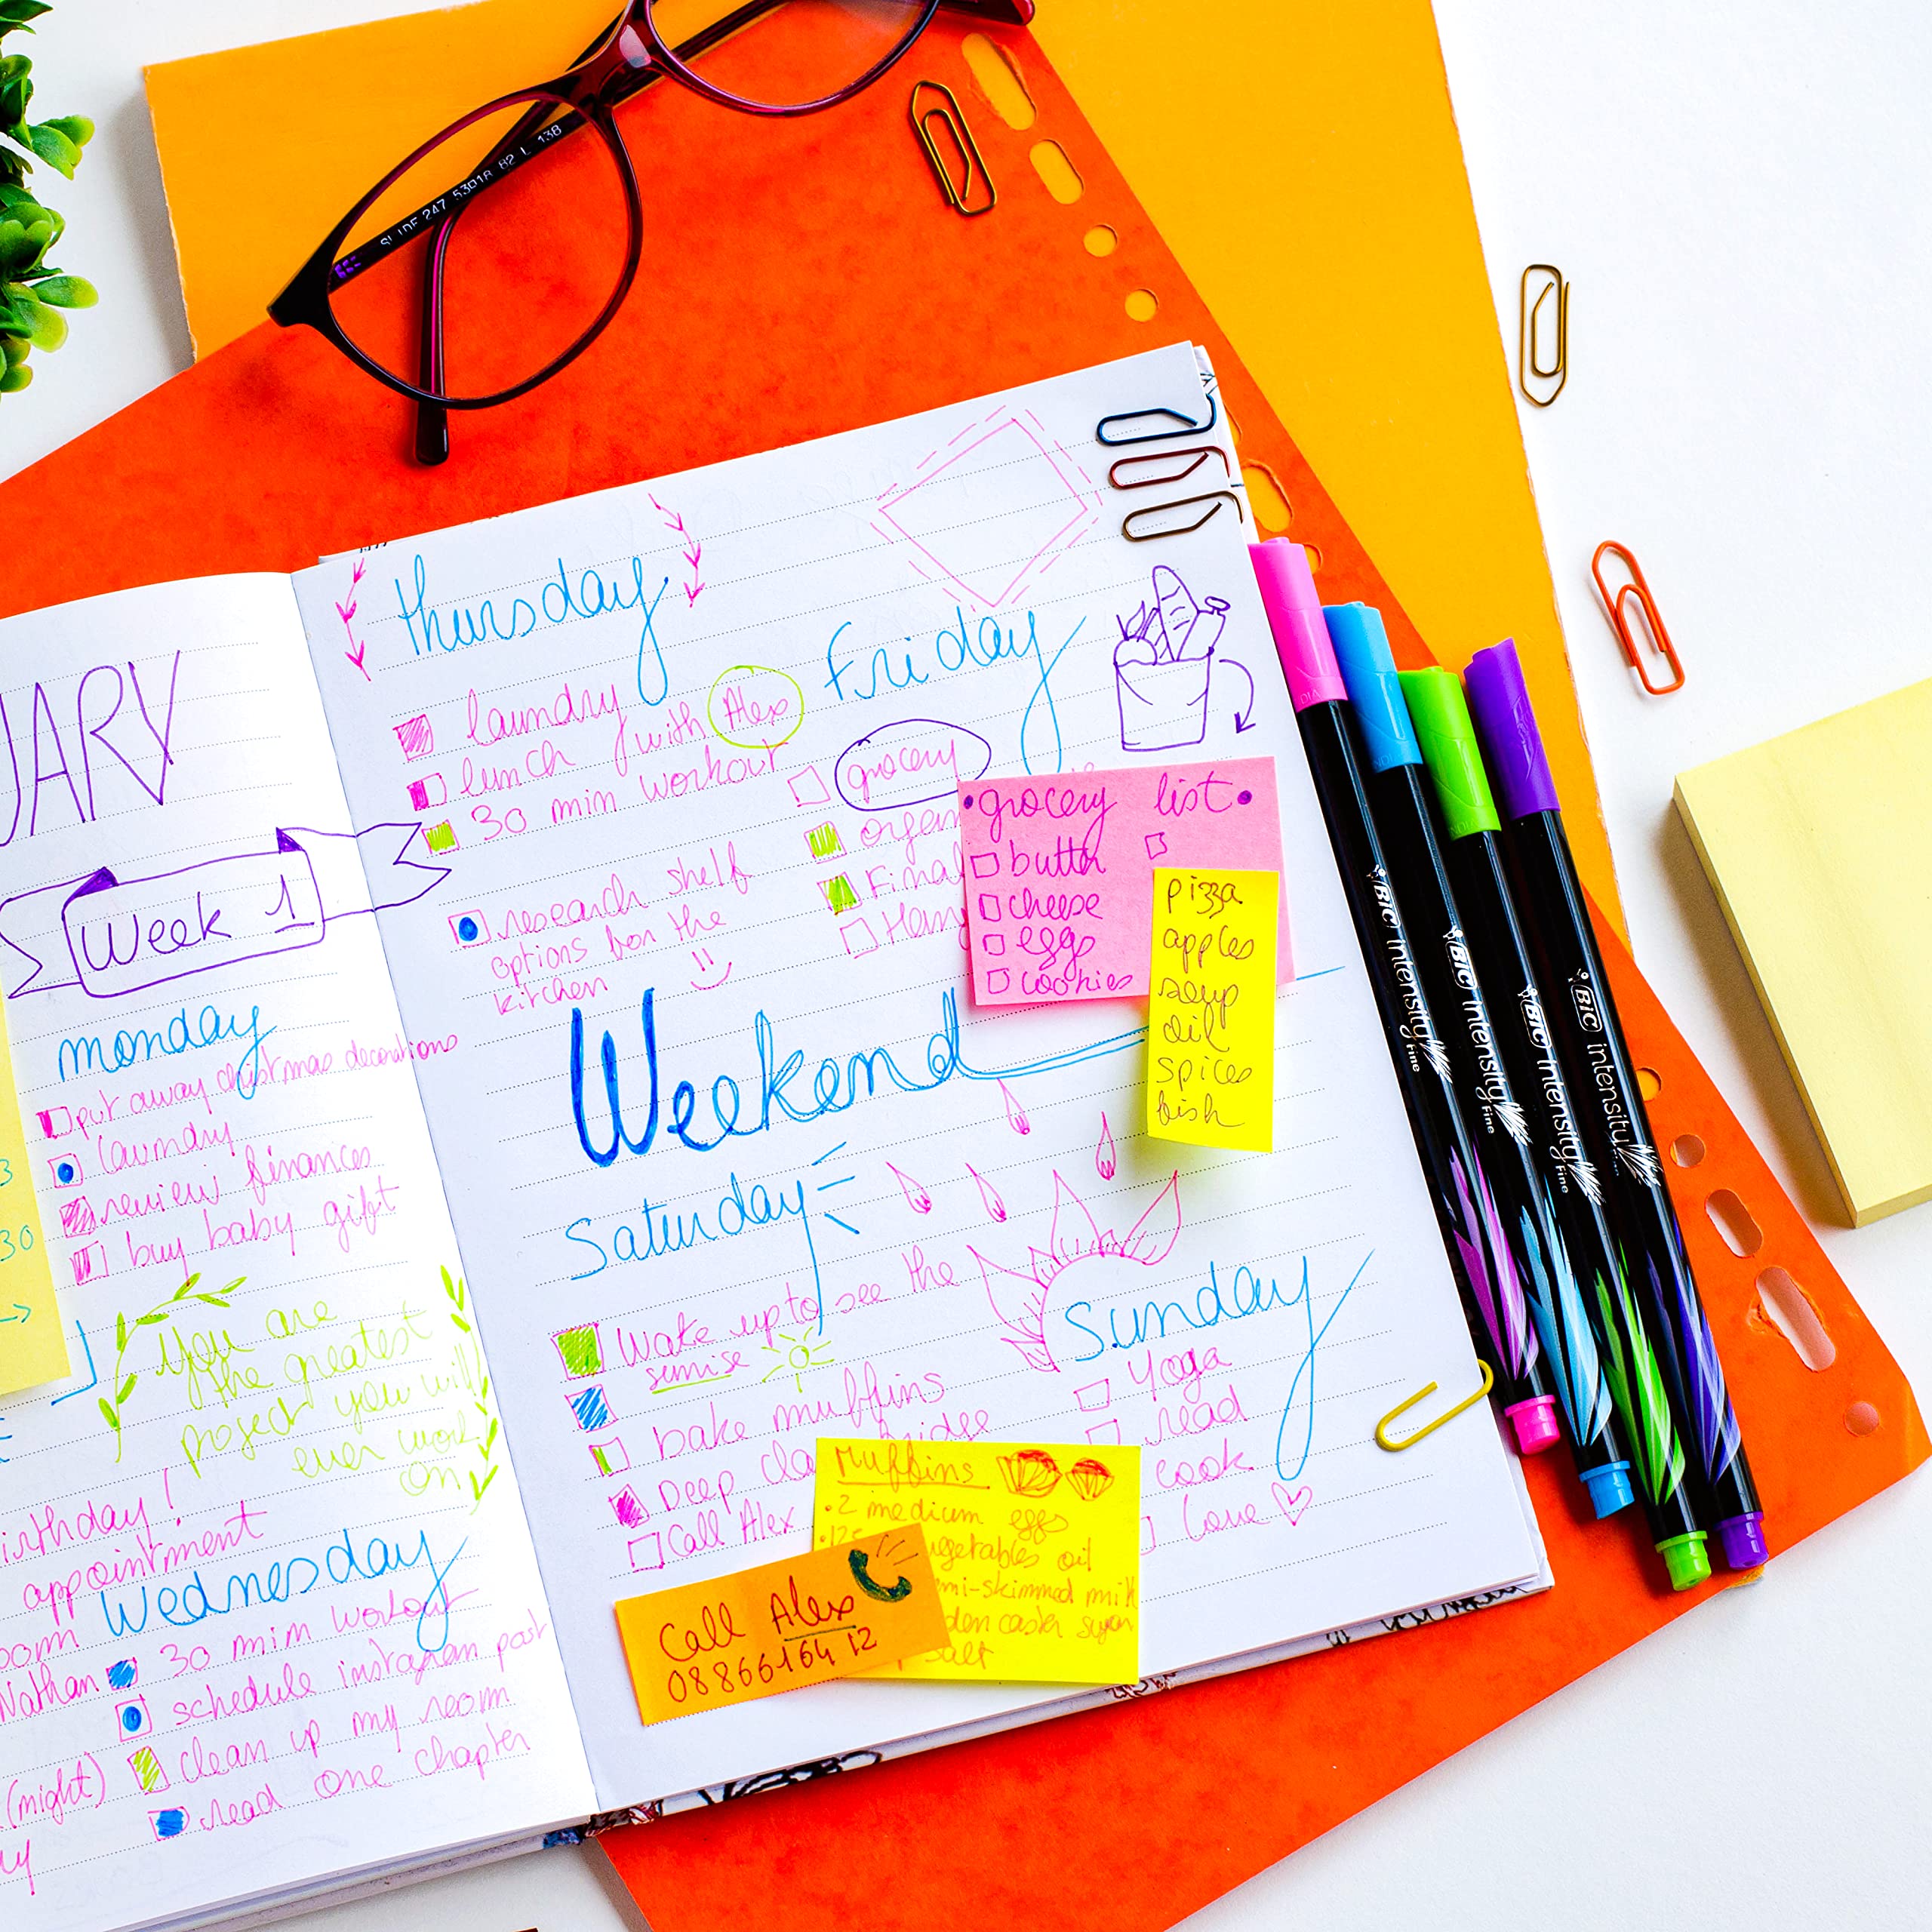 UARY
Week 1
monday
put away christmas decorations
laundry
review finances
buy baby gift
You are
the greatest
project you will
ever work
on
irthday!
appointment
oom
Nathan
(might)
ay
3
30
Wednesday
30 min workout
schedule instagram post
clean up my room
read one chapter
thursday
laundry
lunch with Alex
30 min workout
research shelf
options for the
kitchen
Friday
grocery
organ
Final
grocery list
butter
cheese
eggs
cookies
pizza
apples
soup
oil
spices
fish
Weekend
Saturday
Wake up to see the
sunrise
bake muffins
Deep clea
Call Alex
Sunday
Yoga
read
cook
love
Muffins
• 2 medium eggs
• 125
vegetables oil
mi-skimmed milk
den caster sugar
salt
Call Alex
0886616412
SLIDE 247 53018 82 L 138
BIC intensity Fine
BIC intensity Fine
BIC intensity Fine
BIC intensity